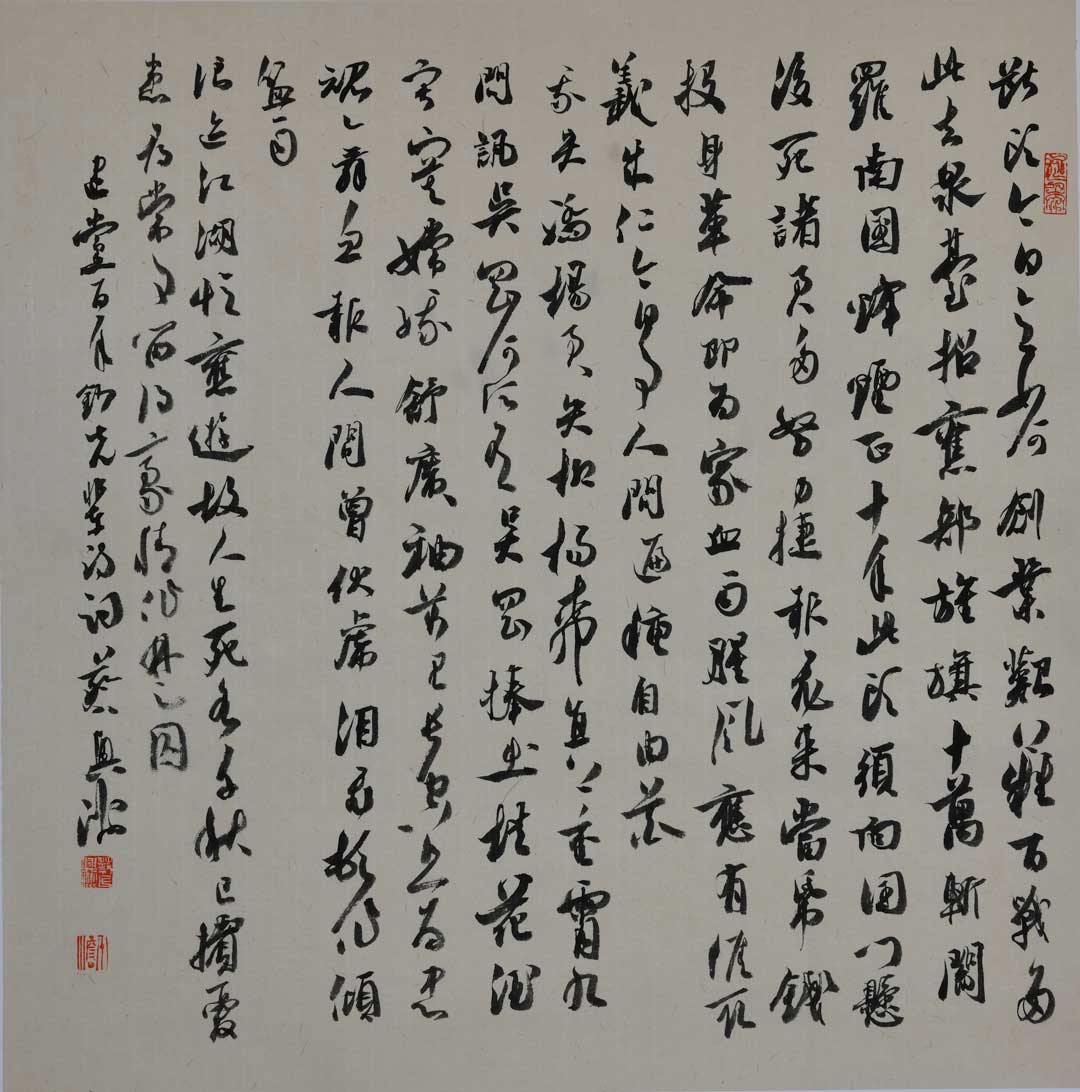 斷頭今日意如何創業艱難百戰多
此去泉臺招舊部旌旗十萬斬閻
羅南國烽煙正十年此頭須向國門懸
後死諸君多努力捷報飛來當紙錢
投身革命即為家血雨腥風應有涯取
義成仁今日事人間遍種自由花
我失驕楊君失柳楊直上重霄九
問訊吳剛何所有吳剛捧出桂花酒
寂寞嫦娥舒廣袖萬里長空且為忠
魂舞忽報人間曾伏虎淚飛頓作傾
盆雨
浪迹江湖憶舊遊故人生死各千秋已擯憂
患尋常事留得豪情作楚囚
建黨百年鈔先輩詩詞蔡興